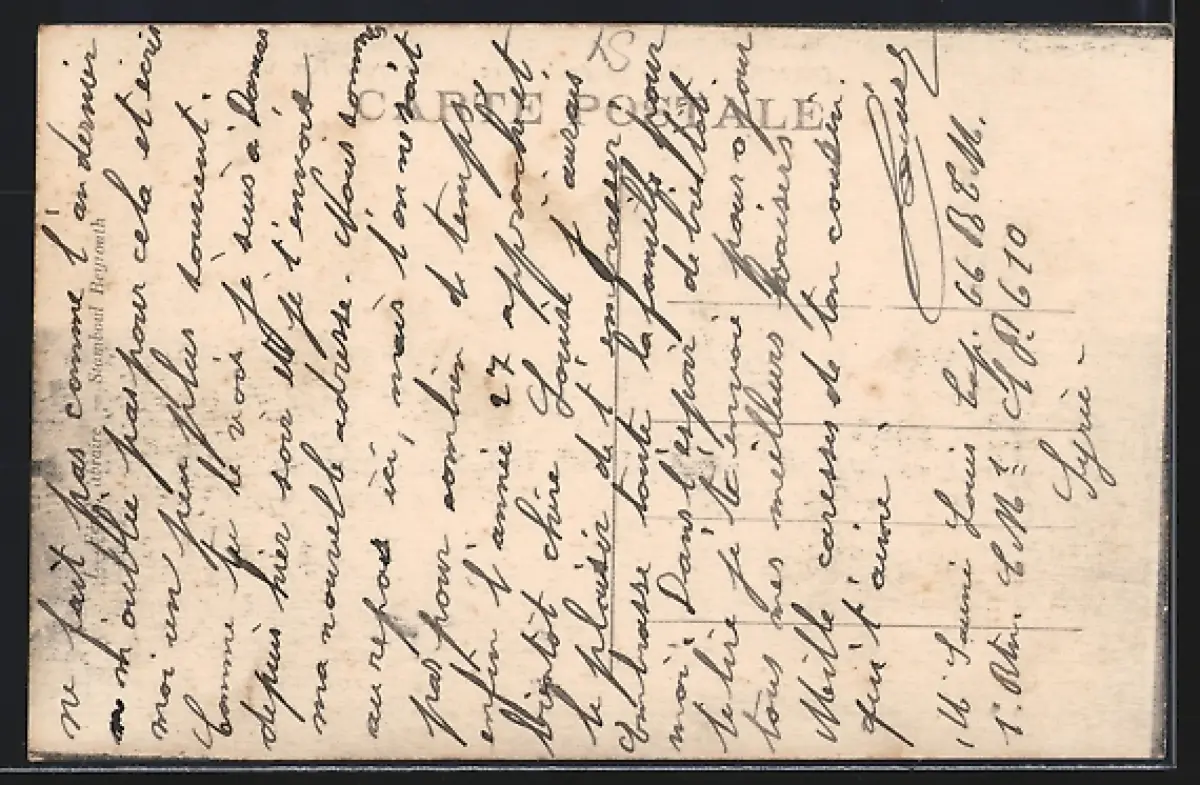 CARTE POSTALE
Stamboul Beyrouth
ne fait pas comme l'an dernier
m'oublie pas pour cela et ecris
moi un peu plus souvent.
Comme tu le vois je suis à Damas
depuis hier soir et je t'envois
ma nouvelle adresse. Nous sommes
au repos ici, mais l'on ne sait
pas pour combien de temps
enfin l'année 27 approche et
bientôt chère Louise j'aurais
le plaisir de t'embrasser.
Embrasse toute la famille pour
moi. Dans l'espoir de bientôt
te lire je t'envoie pour ce jour
tous mes meilleurs baisers
Mille caresses de ton cousin
qui t'aime
Louis
Mr Louis 66 B.T.M.
C.M. S.P. 610
Syrie -